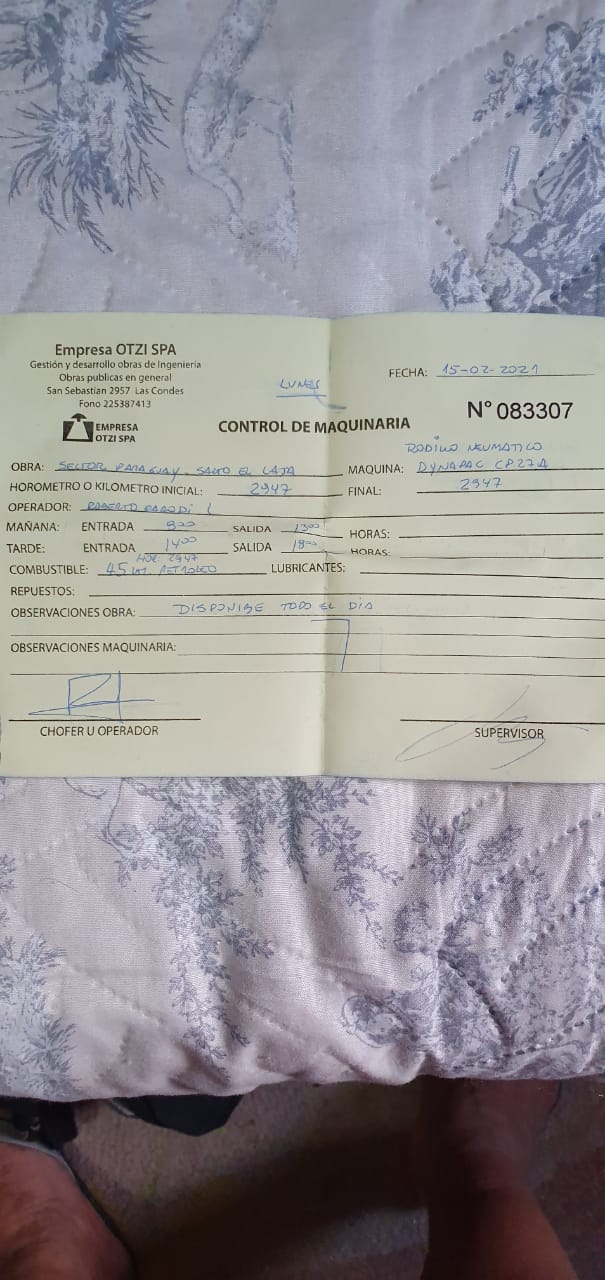 Empresa OTZI SPA
Gestión y desarrollo obras de Ingeniería
Obras publicas en general
San Sebastian 2957 Las Condes
Fono 225387413
EMPRESA
OTZI SPA
LUNES
FECHA: 15-02-2021
N° 083307
CONTROL DE MAQUINARIA
RODILLO NEUMATICO
OBRA: SECTOR PARAGUAY. SALTO EL LAJA MAQUINA: DYNAPAC CP.27A
HOROMETRO O KILOMETRO INICIAL: 2947 FINAL: 2947
OPERADOR: ROBERTO PARODI L
MAÑANA: ENTRADA 800 SALIDA 1300 HORAS:
TARDE: ENTRADA 1400 SALIDA 1800 HORAS:
HOR: 2947
COMBUSTIBLE: 45 LTS. PETROLEO LUBRICANTES:
REPUESTOS:
OBSERVACIONES OBRA: DISPONIBE TODO EL DIA
OBSERVACIONES MAQUINARIA:
CHOFER U OPERADOR SUPERVISOR